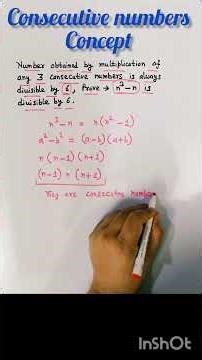 Consecutive numbers
Concept
Number obtained by multiplication of
any 3 consecutive numbers is always
divisible by 6, Prove → n³-n is
divisible by 6.
n³-n = n(n²-1)
a²-b² = (a-b)(a+b)
n(n-1)(n+1)
(n-1) n (n+1)
They are consecutive number
InShOt